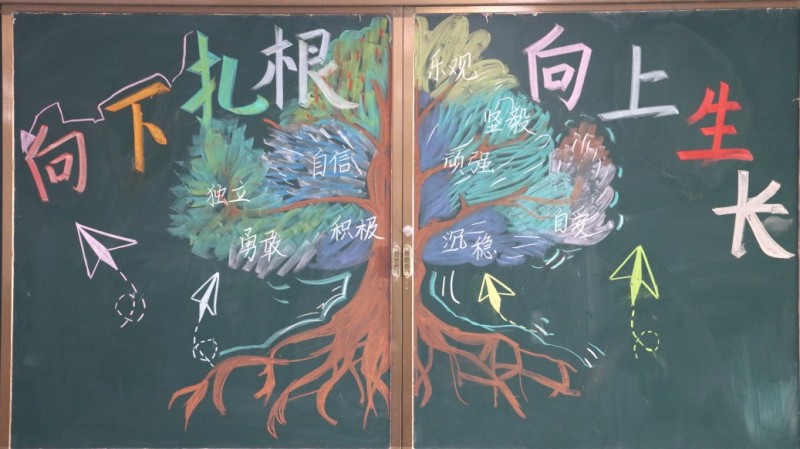 向下扎根
向上生长
乐观
坚毅
自信
顽强
独立
勇敢
积极
沉稳
自爱